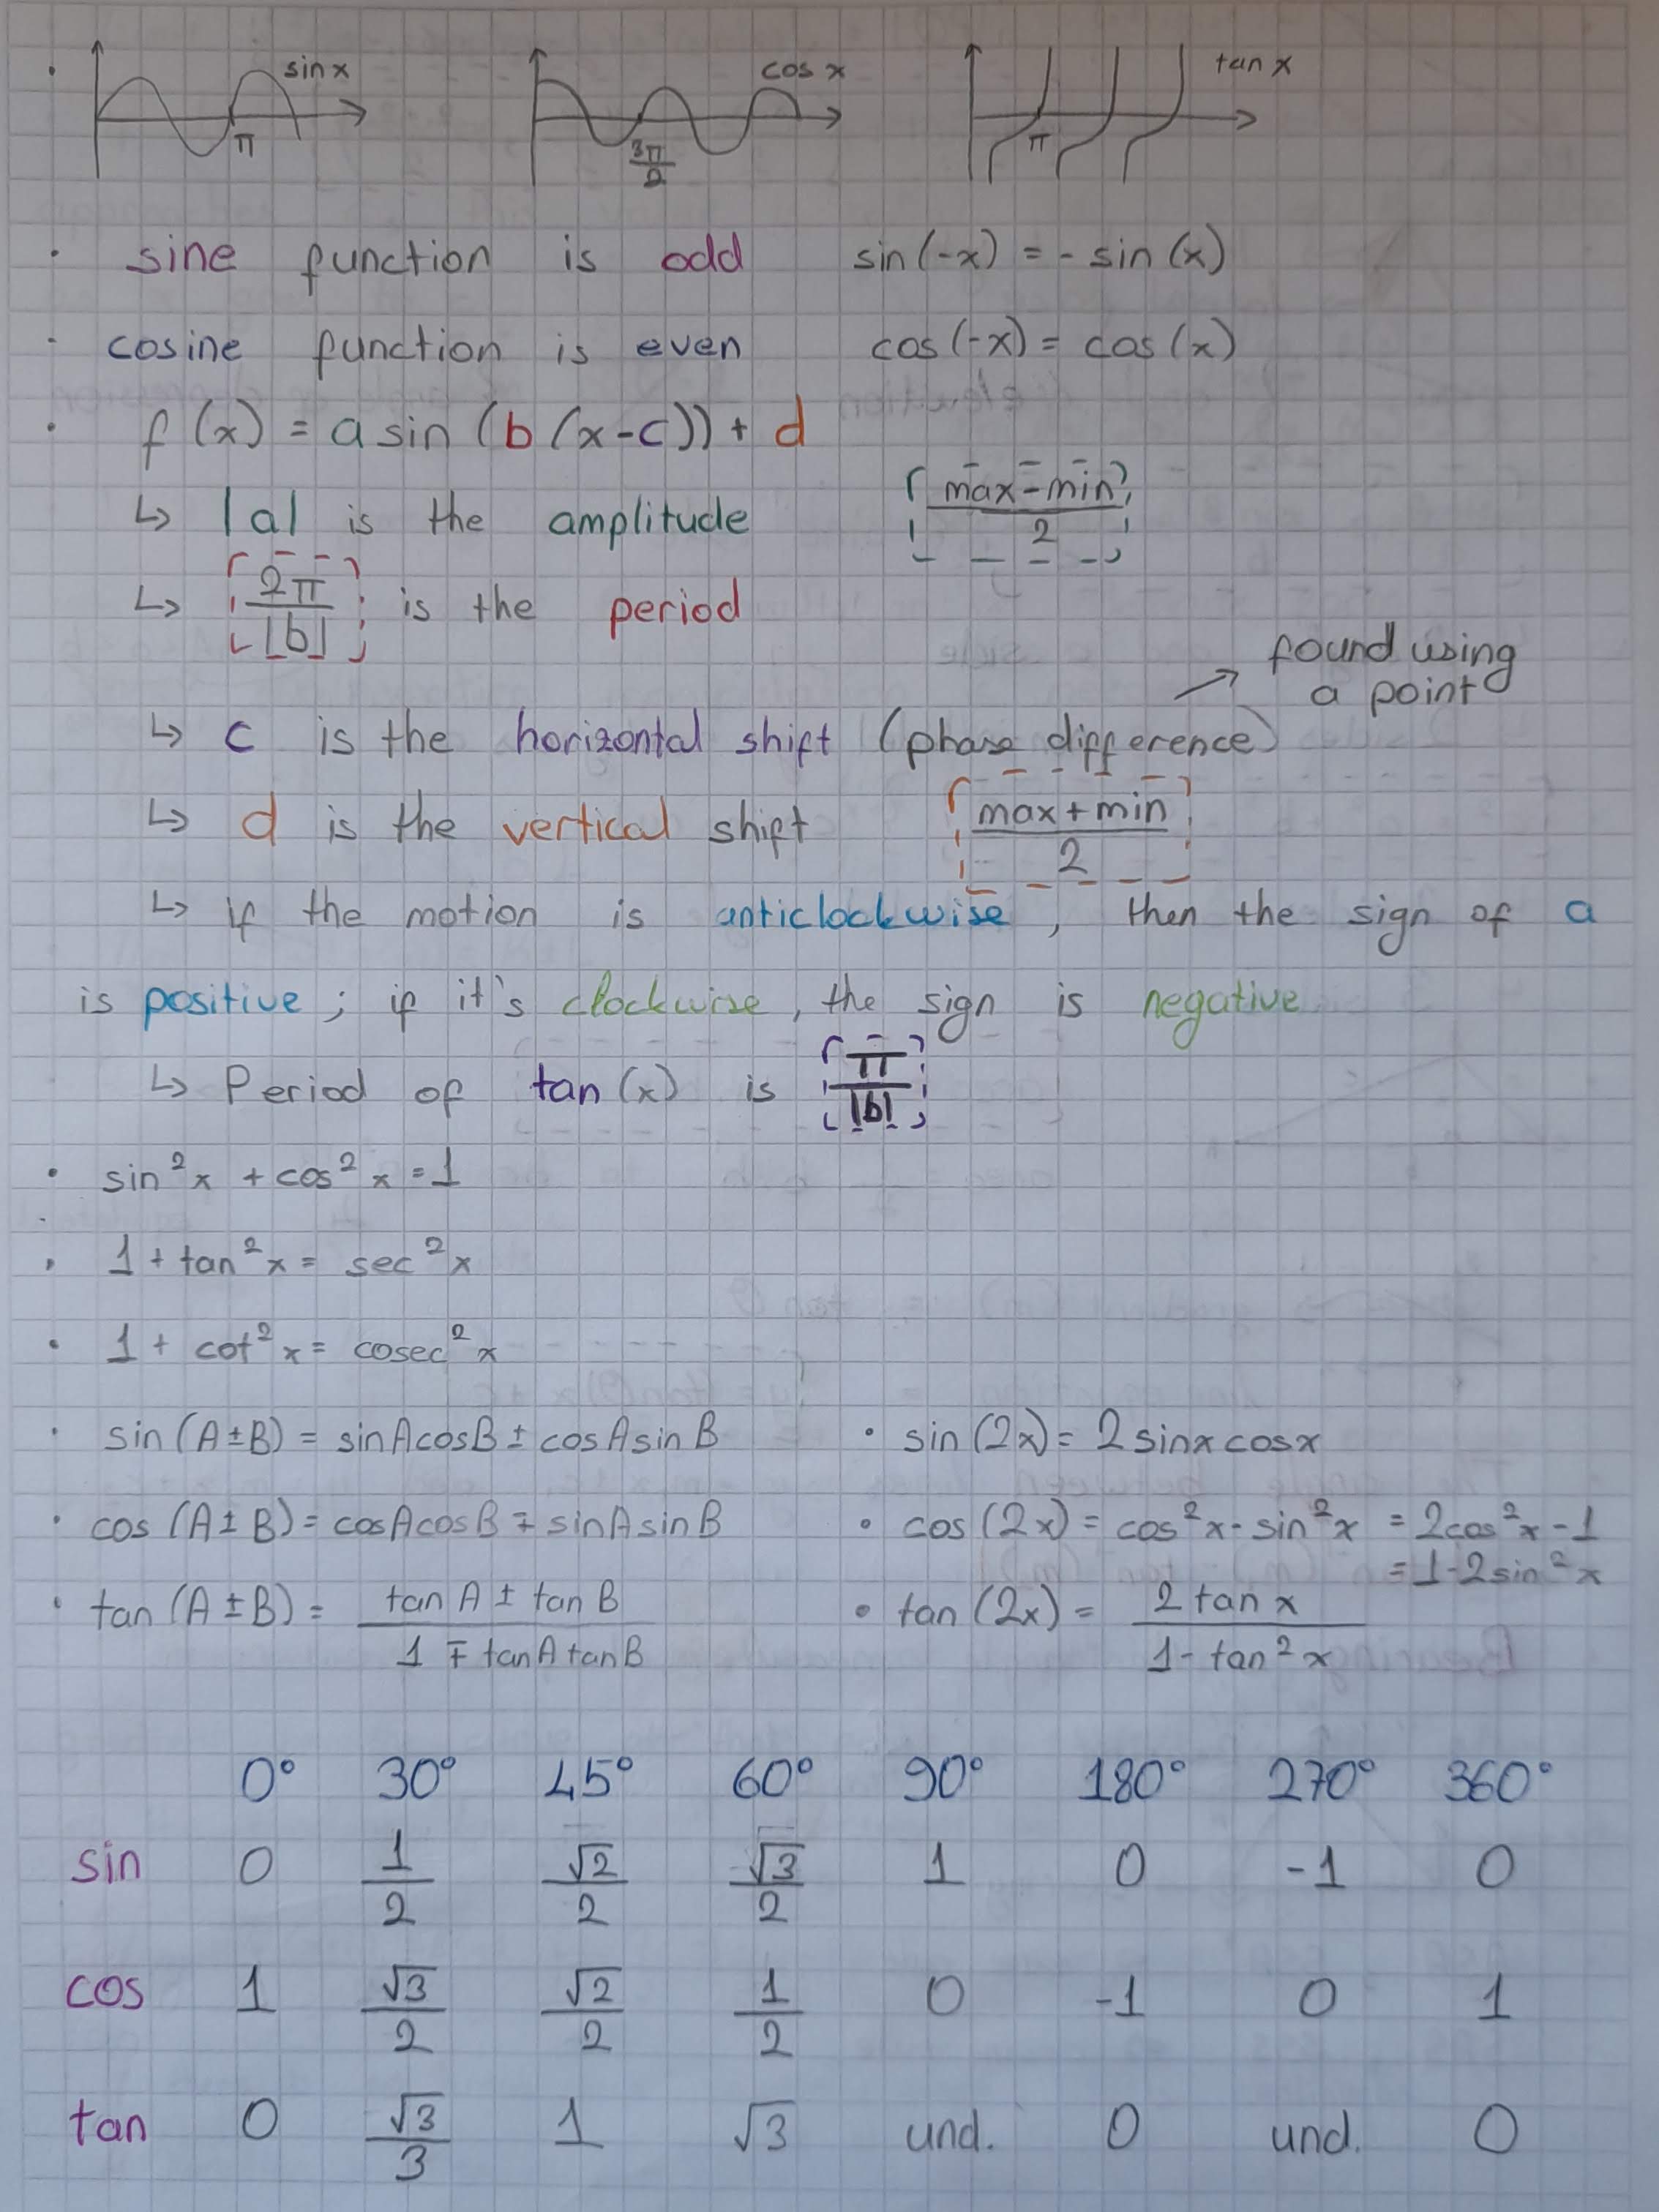 • sin x cos x tan x
π 3π/2 π
• sine function is odd sin(-x) = - sin(x)
• cosine function is even cos(-x) = cos(x)
• f(x) = a sin (b(x-c)) + d
↳ |a| is the amplitude (max-min)/2
↳ 2π/|b| is the period
found using
a point
↳ c is the horizontal shift (phase difference)
↳ d is the vertical shift (max+min)/2
↳ if the motion is anticlockwise, then the sign of a
is positive; if it's clockwise, the sign is negative
↳ Period of tan(x) is π/|b|
• sin²x + cos²x = 1
• 1 + tan²x = sec²x
• 1 + cot²x = cosec²x
• sin(A±B) = sinAcosB ± cosAsinB • sin(2x) = 2sinxcosx
• cos(A±B) = cosAcosB ∓ sinAsinB • cos(2x) = cos²x - sin²x = 2cos²x - 1
= 1-2sin²x
• tan(A±B) = (tanA ± tanB)/(1 ∓ tanAtanB) • tan(2x) = (2tanx)/(1-tan²x)
0° 30° 45° 60° 90° 180° 270° 360°
sin 0 1/2 √2/2 √3/2 1 0 -1 0
cos 1 √3/2 √2/2 1/2 0 -1 0 1
tan 0 √3/3 1 √3 und. 0 und. 0